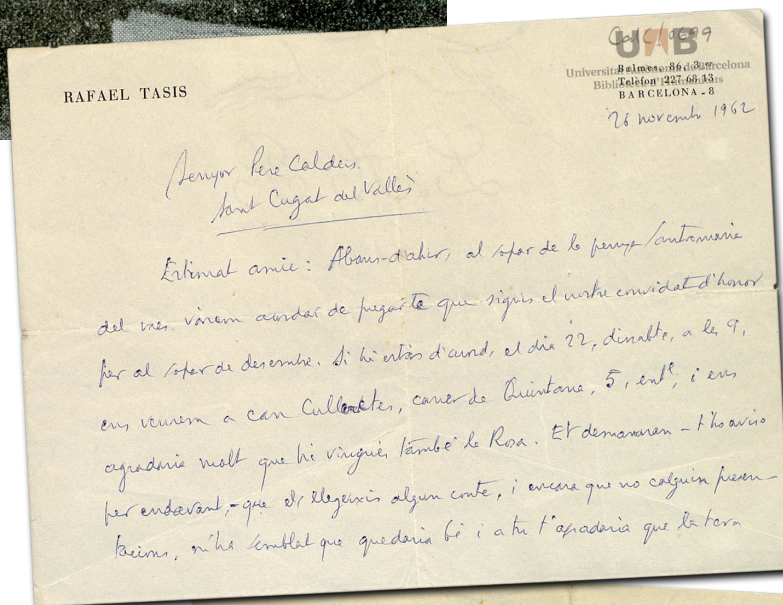 Calc/0699
UAB
Universitat Autònoma de Barcelona
Biblioteca d'Humanitats
RAFAEL TASIS
Balmes, 86, 3.er
Telèfon 227 68 13
BARCELONA - 8
26 novembre 1962
Senyor Pere Calders
Sant Cugat del Vallès
Estimat amic: Abans-d'ahir, al sopar de la penya
del mes, vàrem acordar de pregar-te que siguis el nostre convidat d'honor
per al sopar de desembre. Si hi estàs d'acord, el dia 22, dissabte, a les 9,
ens veurem a can Culleretes, carrer de Quintana, 5, entl; i ens
agradaria molt que hi vingués també la Rosa. Et demanaran - t'ho aviso
per endavant, - que els llegeixis algun conte, i encara que no calguin presen-
tacions, m'ha semblat que quedaria bé i a tu t'agradaria que la teva